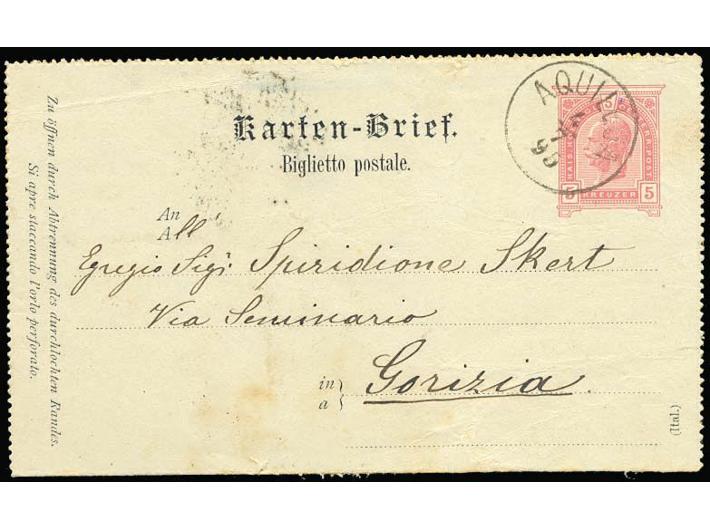 Karten-Brief.
Biglietto postale.
An
All'
Egregio Sigr. Spiridione Skert
Via Seminario
in
a
Gorizia
(Ital.)
Zu öffnen durch Abtrennung des durchlochten Randes.
Si apre staccando l'orlo perforato.
5
5 KREUZER 5